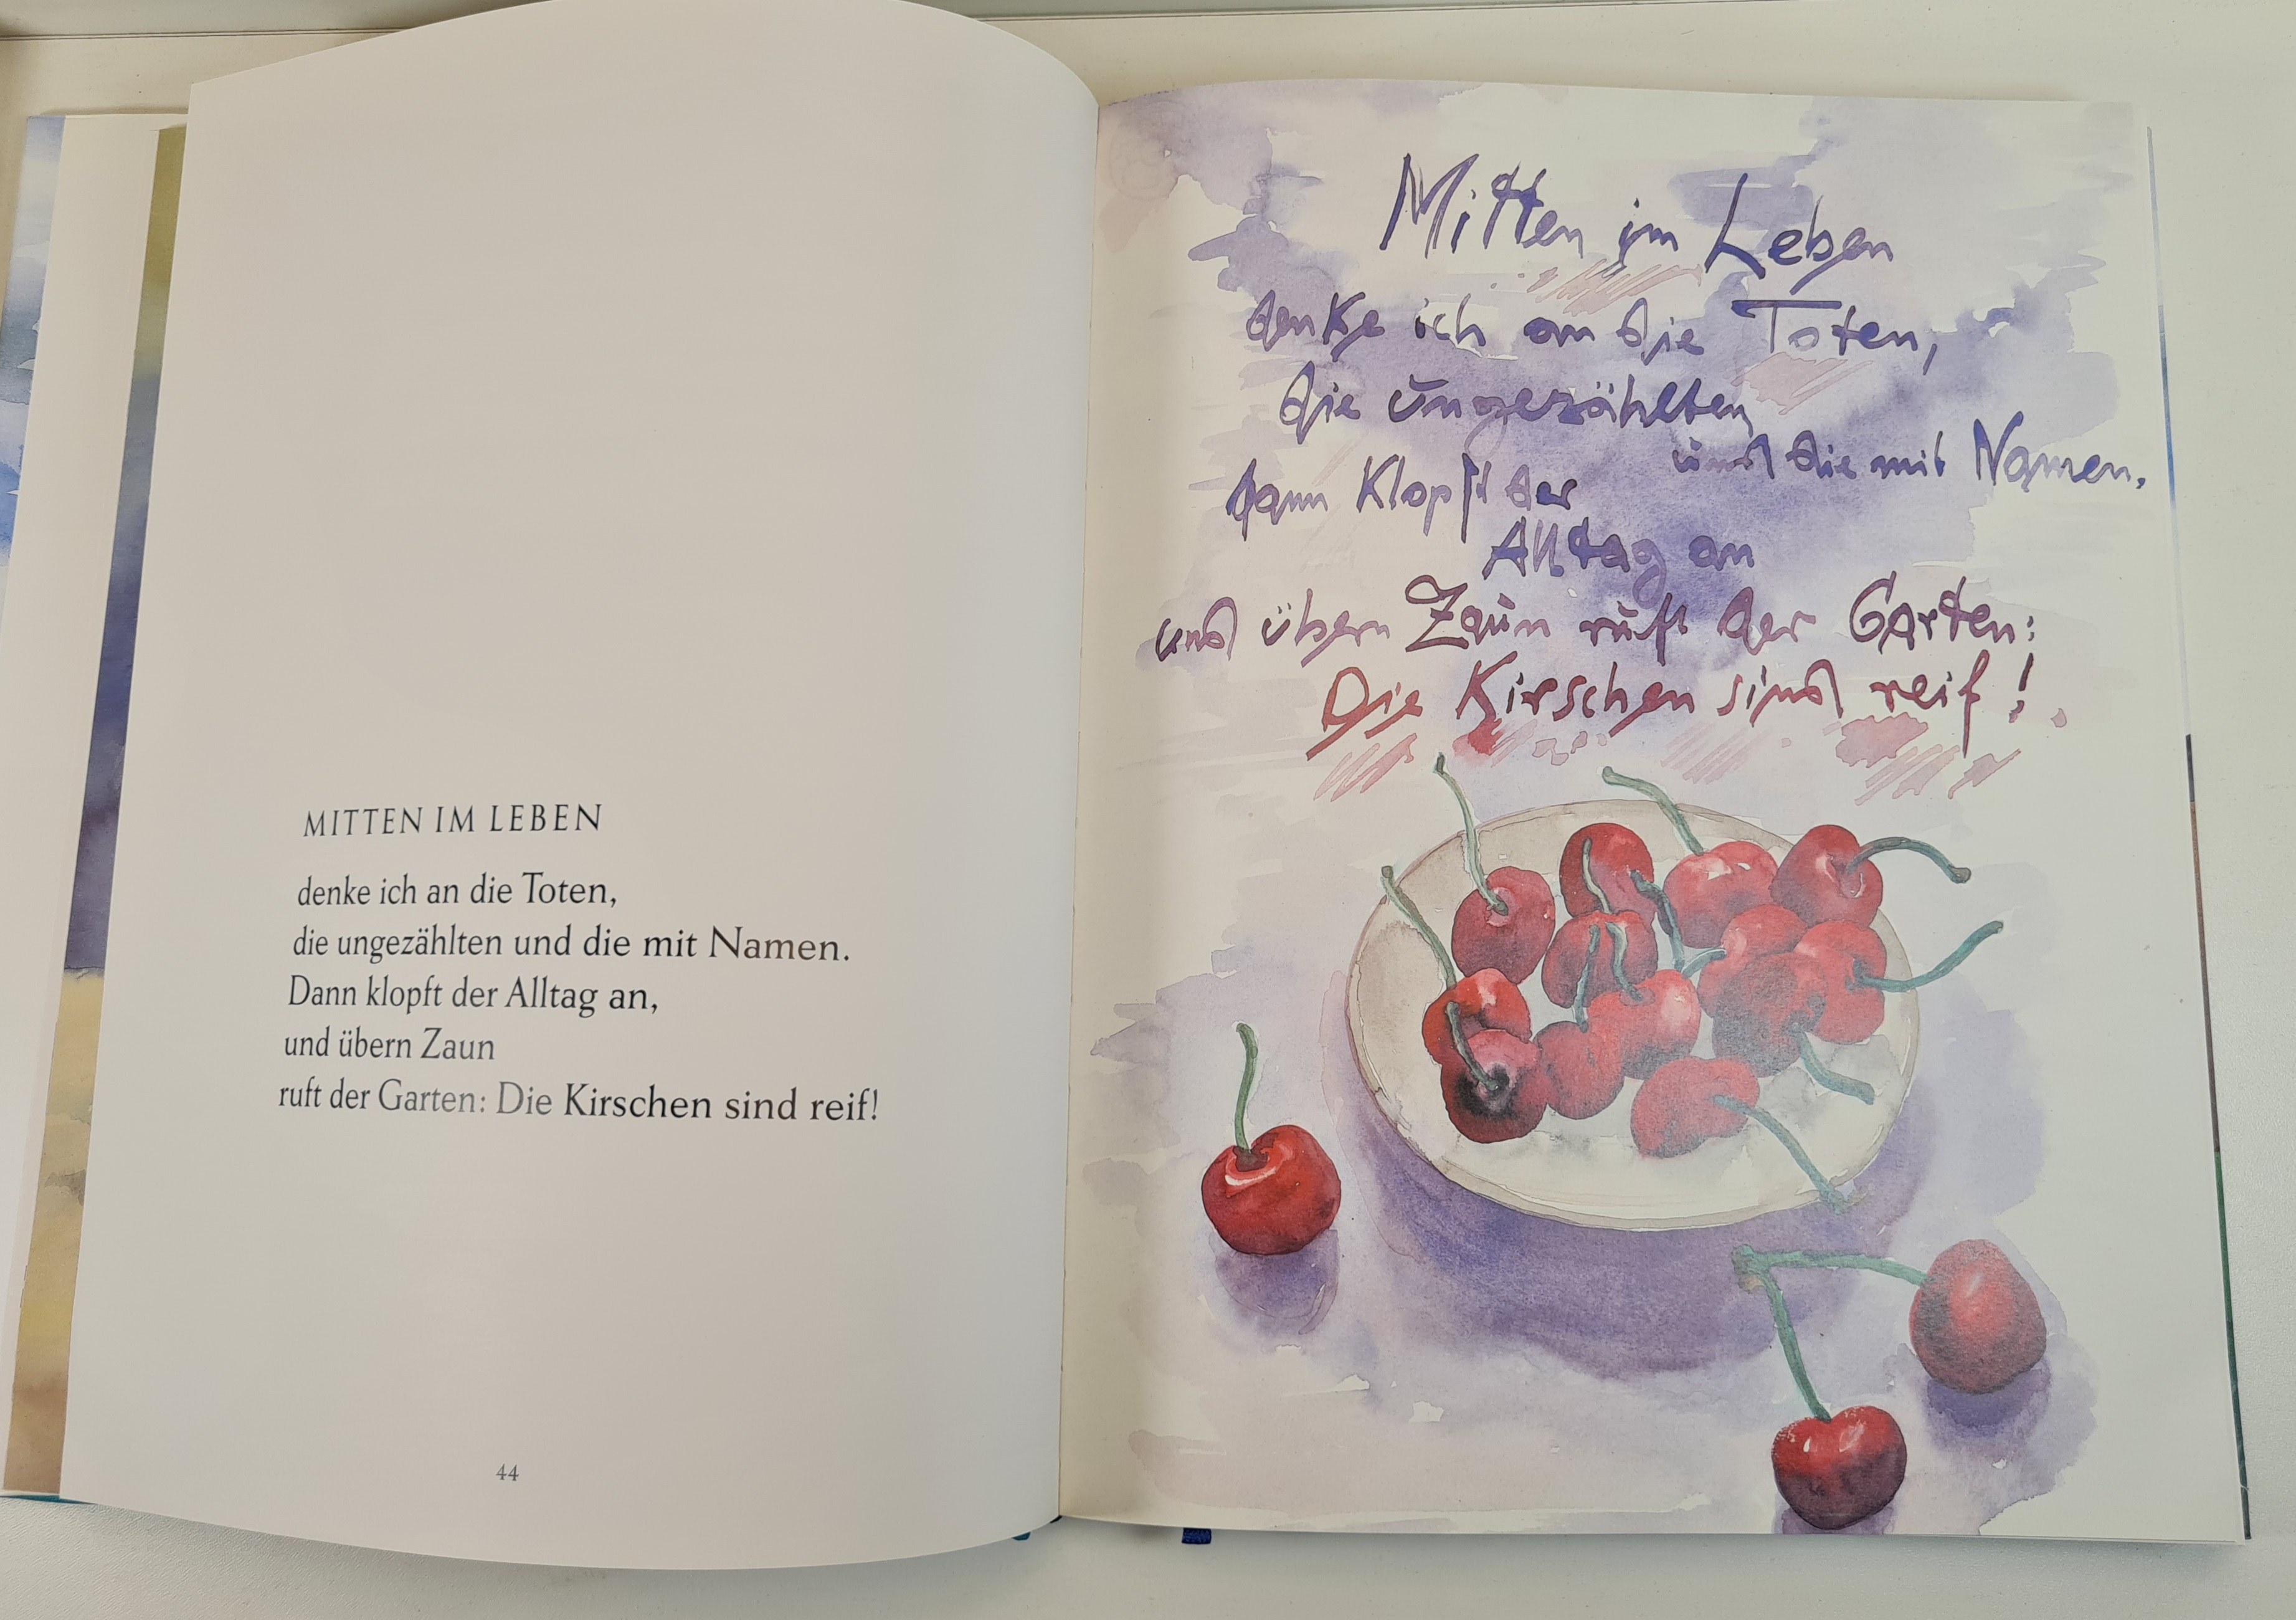 MITTEN IM LEBEN
denke ich an die Toten,
die ungezählten und die mit Namen.
Dann klopft der Alltag an,
und übern Zaun
ruft der Garten: Die Kirschen sind reif!
44
Mitten im Leben
denke ich an die Toten,
die ungezählten
und die mit Namen.
dann klopft der
Alltag an
und übern Zaun ruft der Garten:
Die Kirschen sind reif!